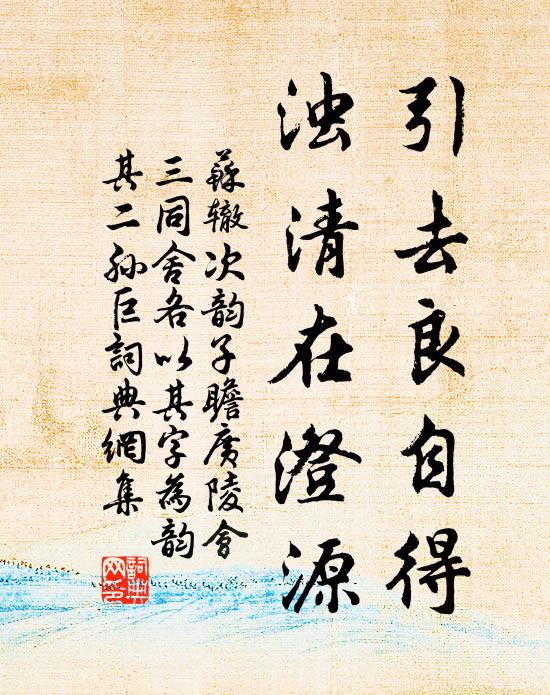 引去良自得
浊清在澄源
蘇辙次韵子瞻廣陵會
三同舍各以其字為韵
其二孙巨詞典網集
詞典网